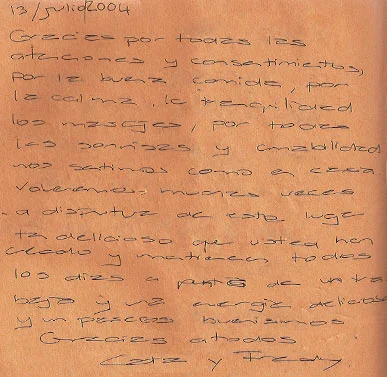 13/julio2004
Gracias por todas las
atenciones y consentimientos,
por la buena comida, por
la calma, la tranquilidad
los masajes, por todas
las sonrisas y amabilidad
nos sentimos como en casa
volveremos muchas veces
a disfrutar de este lugar
ta delicioso que usted han
creado y mantienen todos
los dias a punta de un tra
bajo y una energia deliciosa
y un passeos buenisimos
Gracias a todos
y Fredy.